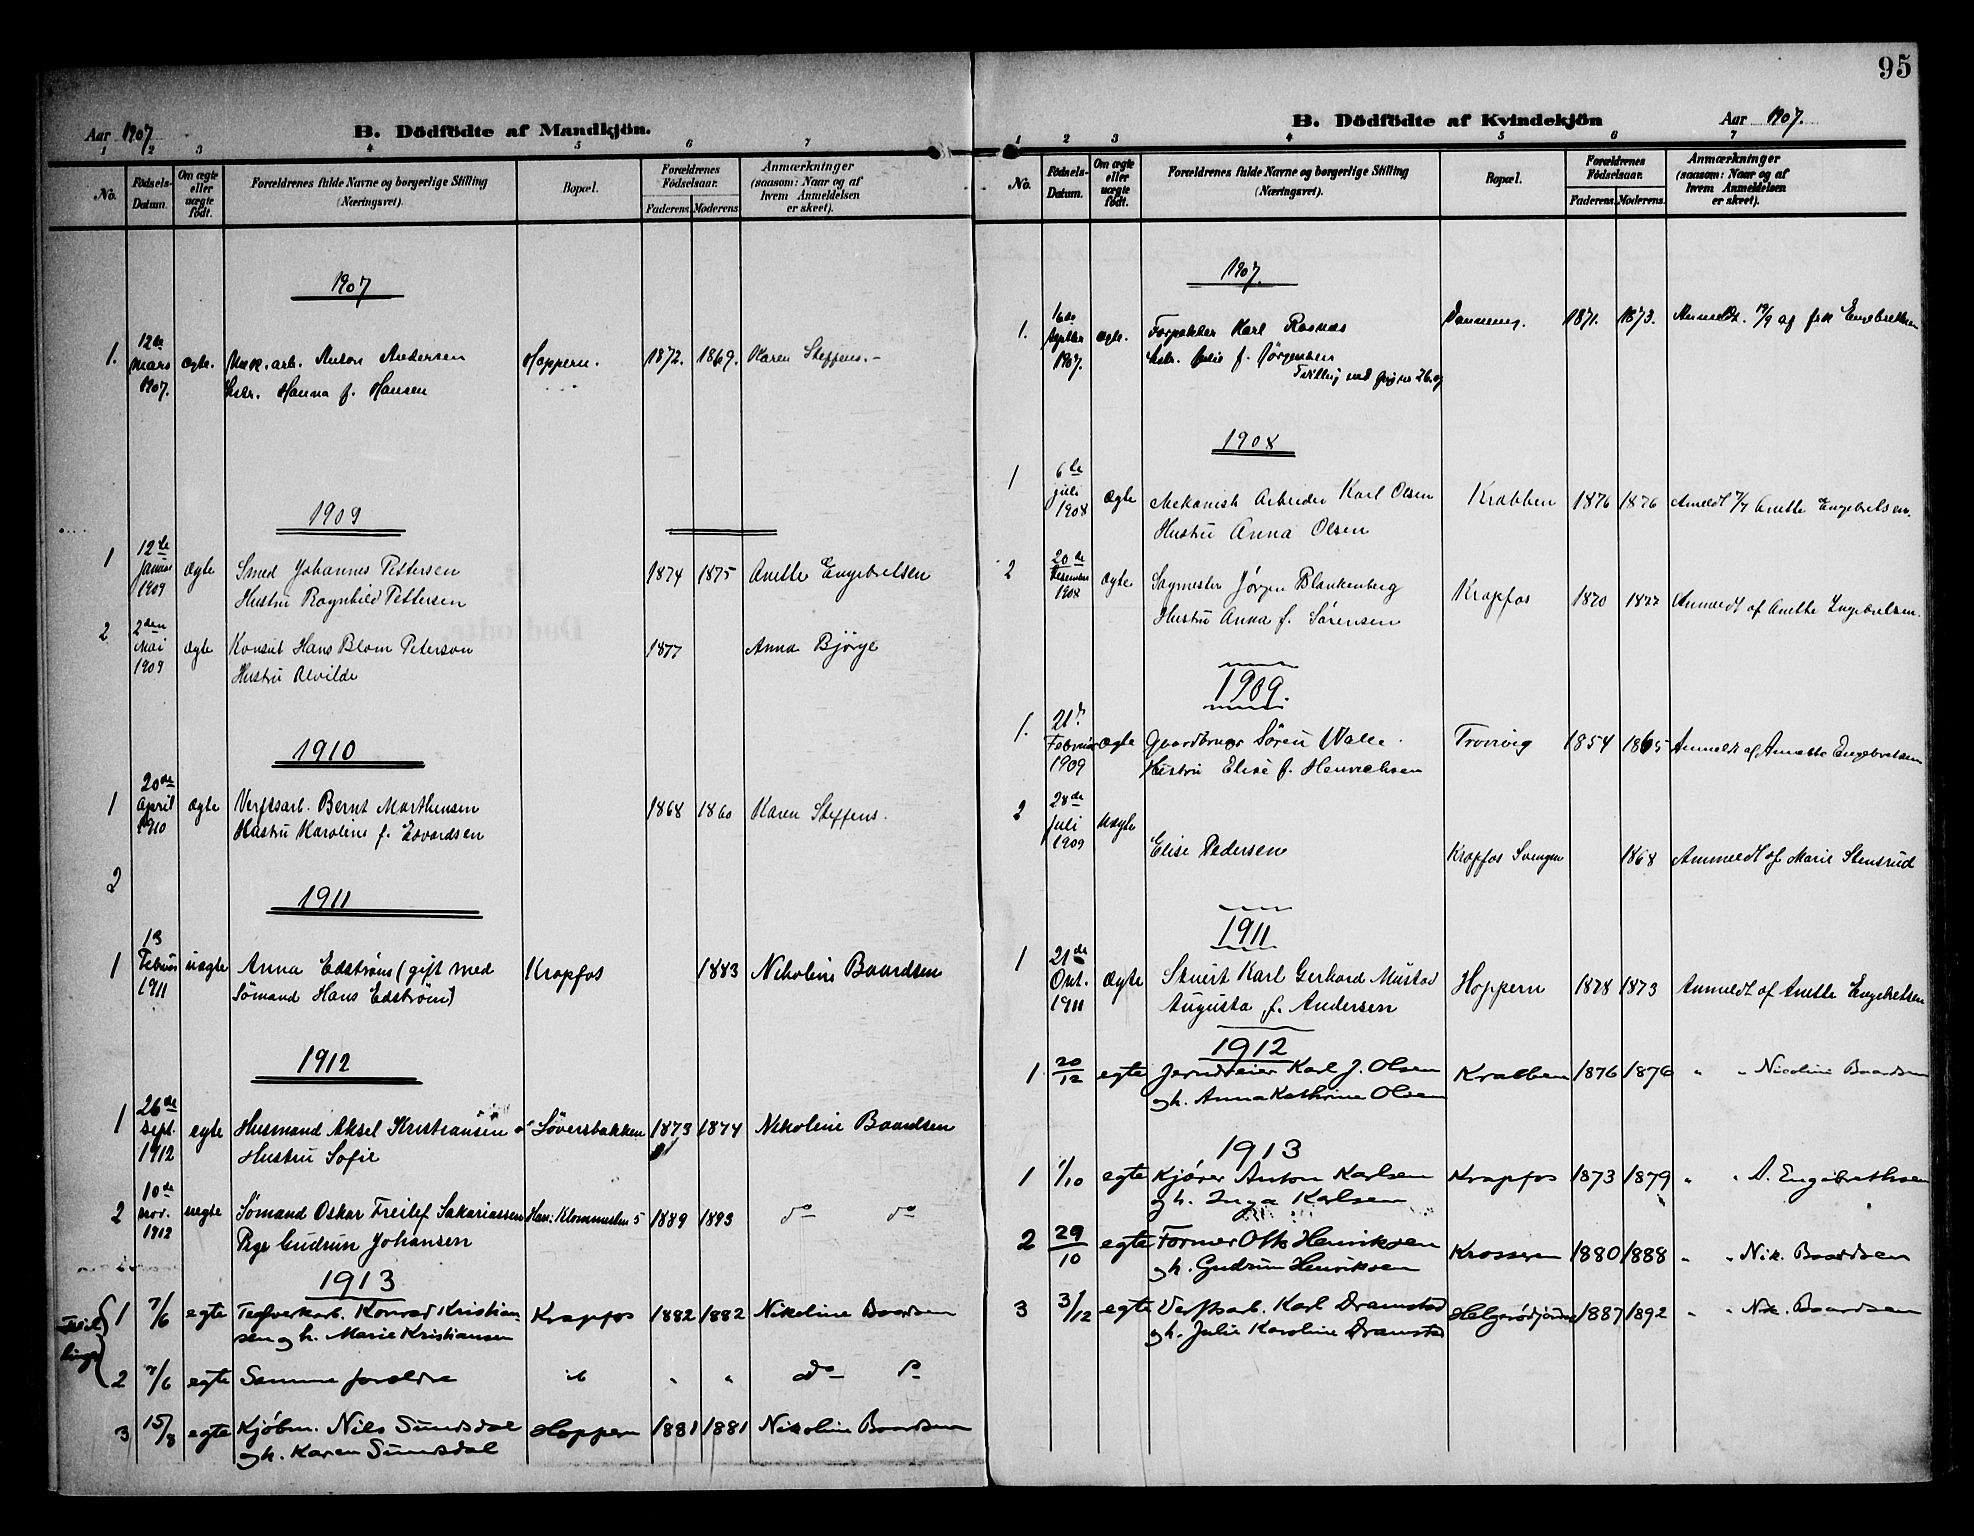 95
Aar 1907
B. Dödfödte af Mandkjön.
1 2 3 4 5 6 7
No.
Födsels-Datum.
Om ægte eller uægte födt.
Forældrenes fulde Navne og borgerlige Stilling (Næringsvei).
Bopæl.
Forældrenes Födselsaar.
Faderens. Moderens.
Anmærkninger (saasom: Naar og af hvem Anmeldelsen er skeet).
1907
1. 12te mars 1907. ægte. Mek. arb. Anton Andersen Hoppern. 1872. 1869. Karen Steffens.-
Hstr. Hanna f. Hansen
1909
1 12te Januar 1909 ægte Smed Johannes Pettersen 1874 1875 Anette Engebretsen
Hustru Ragnhild Pettersen
2 2den Mai 1909 ægte Konsul Hans Blom Peterson 1877 Anna Bjørge
Hustru Alvilde
1910
1 20de April 1910 ægte Verftsarb. Bernt Marthensen 1868 1860 Karen Steffens.
Hustru Karoline f. Edvardsen
2
1911
1 13 Februar 1911 uægte Anna Edstrøm (gift med Krapfos 1883 Nikoline Baardsen
Sømand Hans Edstrøm)
1912
1 26de Sept. 1912 egte Husmand Aksel Kristiansen Søversbakken 1873 1874 Nikoline Baardsen
Hustru Sofie
2 10de nov. 1912 uegte Sømand Oskar Freilef Sakariassen 1889 1893 do do
Pige Gudrun Johansen
1913
1 7/6 egte Konrad Kristian- Krapfos 1882 1882 Nikoline Baardsen
sen og h. Marie Kristiansen
2 7/6 egte Samme foreldre " " do
3 15/8 egte Kjøbm. Nils Sundsdal Hoppern 1881 1881 Nikoline Baardsen
og h. Karen Sundsdal
B. Dödfödte af Kvindekjön
Aar 1907.
1 2 3 4 5 6 7
No.
Födsels-Datum.
Om ægte eller uægte födt.
Forældrenes fulde Navne og borgerlige Stilling (Næringsvei).
Bopæl.
Forældrenes Födselsaar.
Faderens. Moderens.
Anmærkninger (saasom: Naar og af hvem Anmeldelsen er skeet).
1907.
1. 16de 1907. ægte. Forpakter Karl Rosnæs 1871. 1873. Anmeldt. 19/9 af frk Engebretsen
Hstr. f. Jørgensen
Tvilling med
1908
1 6te juli 1908 ægte Mekanisk Arbeider Karl Olsen Krabben 1876 1876 Anmeldt Anette Engebretsen.
Hustru Anna Olsen
2 20de Desember 1908 ægte Sagmester Jørgen Blankenberg Krapfos 1870 Anmeldt af Anette Engebretsen.
Hustru Anna f. Sørensen
1909.
1. 21de Februar 1909 ægte Gaardbruger Søren Walle. Tronvig 1854 1865 Anmeldt af Anette Engebretsen
Hustru Elise f. Henrichsen
2 28de Juli 1909 Uægte
Elise Pedersen Krapfos Svingen 1868 Anmeldt af Marie Stensrud
1911
1 21de Okt. 1911 ægte Stuert Karl Gerhard Mustad Hoppern 1878 1873 Anmeldt af Anette Engebretsen
Augusta f. Andersen
1912
1 20/12 egte Jerndreier Karl J. Olsen Krabben 1876 1876 " " Nicoline Baardsen
og h. Anna Kathrine Olsen
1913
1 1/10 egte Kjører Anton Karlsen Krapfos 1873 1879 " " A. Engebrethsen
og h. Inga Karlsen
2 29/10 egte Former Otto Henriksen Krosseren 1880 1888 " " Nik. Baardsen
og h. Gudrun Henriksen
3 3/12 egte Verftsarb. Karl Dramstad 1887 1892 " " Nik. Baardsen
og h. Julie Karoline Dramstad